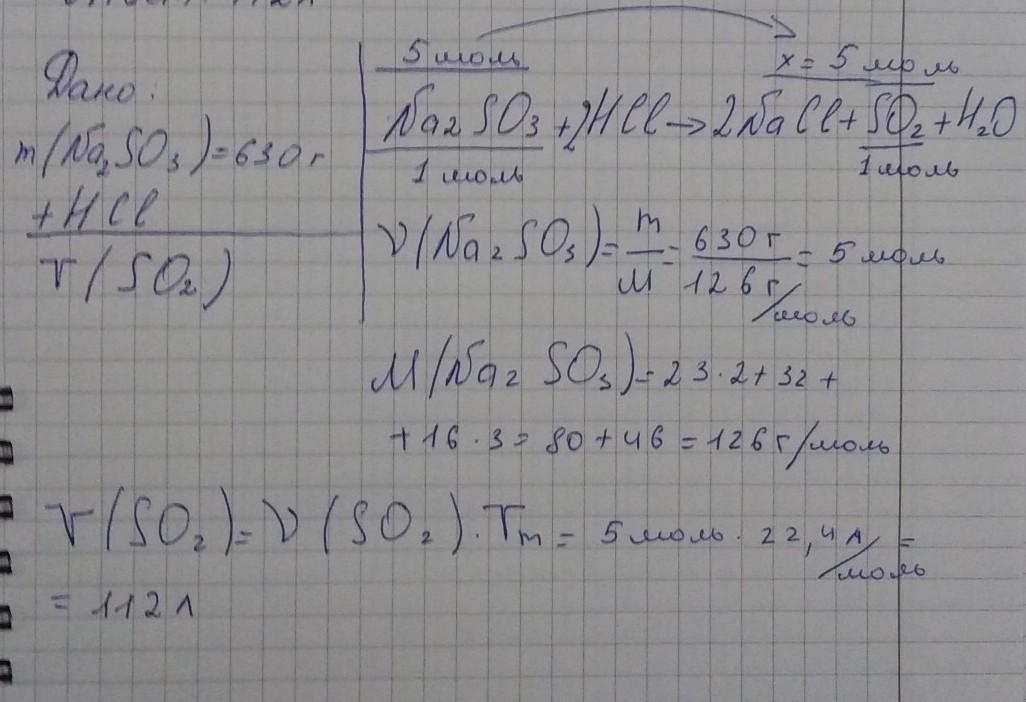 Дано:
m(Na2SO3)=630г
+HCl
V(SO2)
5 моль
x = 5 моль
Na2SO3 + 2HCl → 2NaCl + SO2 + H2O
1 моль
1 моль
ν(Na2SO3) = m/M = 630 г / 126 г/моль = 5 моль
M(Na2SO3) = 23·2 + 32 +
+ 16·3 = 80 + 46 = 126 г/моль
V(SO2) = ν(SO2)·Vm = 5 моль · 22,4 л/моль =
= 112 л